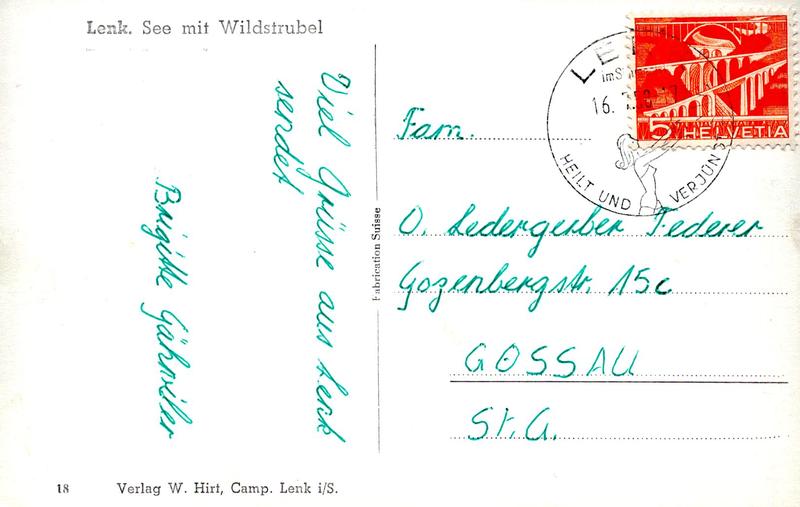 Lenk. See mit Wildstrubel
Viel Grüsse aus Lenk
sendet
Brigitte Gähwiler
Fabrication Suisse
18 Verlag W. Hirt, Camp. Lenk i/S.
5 HELVETIA
HEILT UND VERJÜN
16.
Fam.
O. Ledergerber Federer
Gozenbergstr. 15c
GOSSAU
St. G.